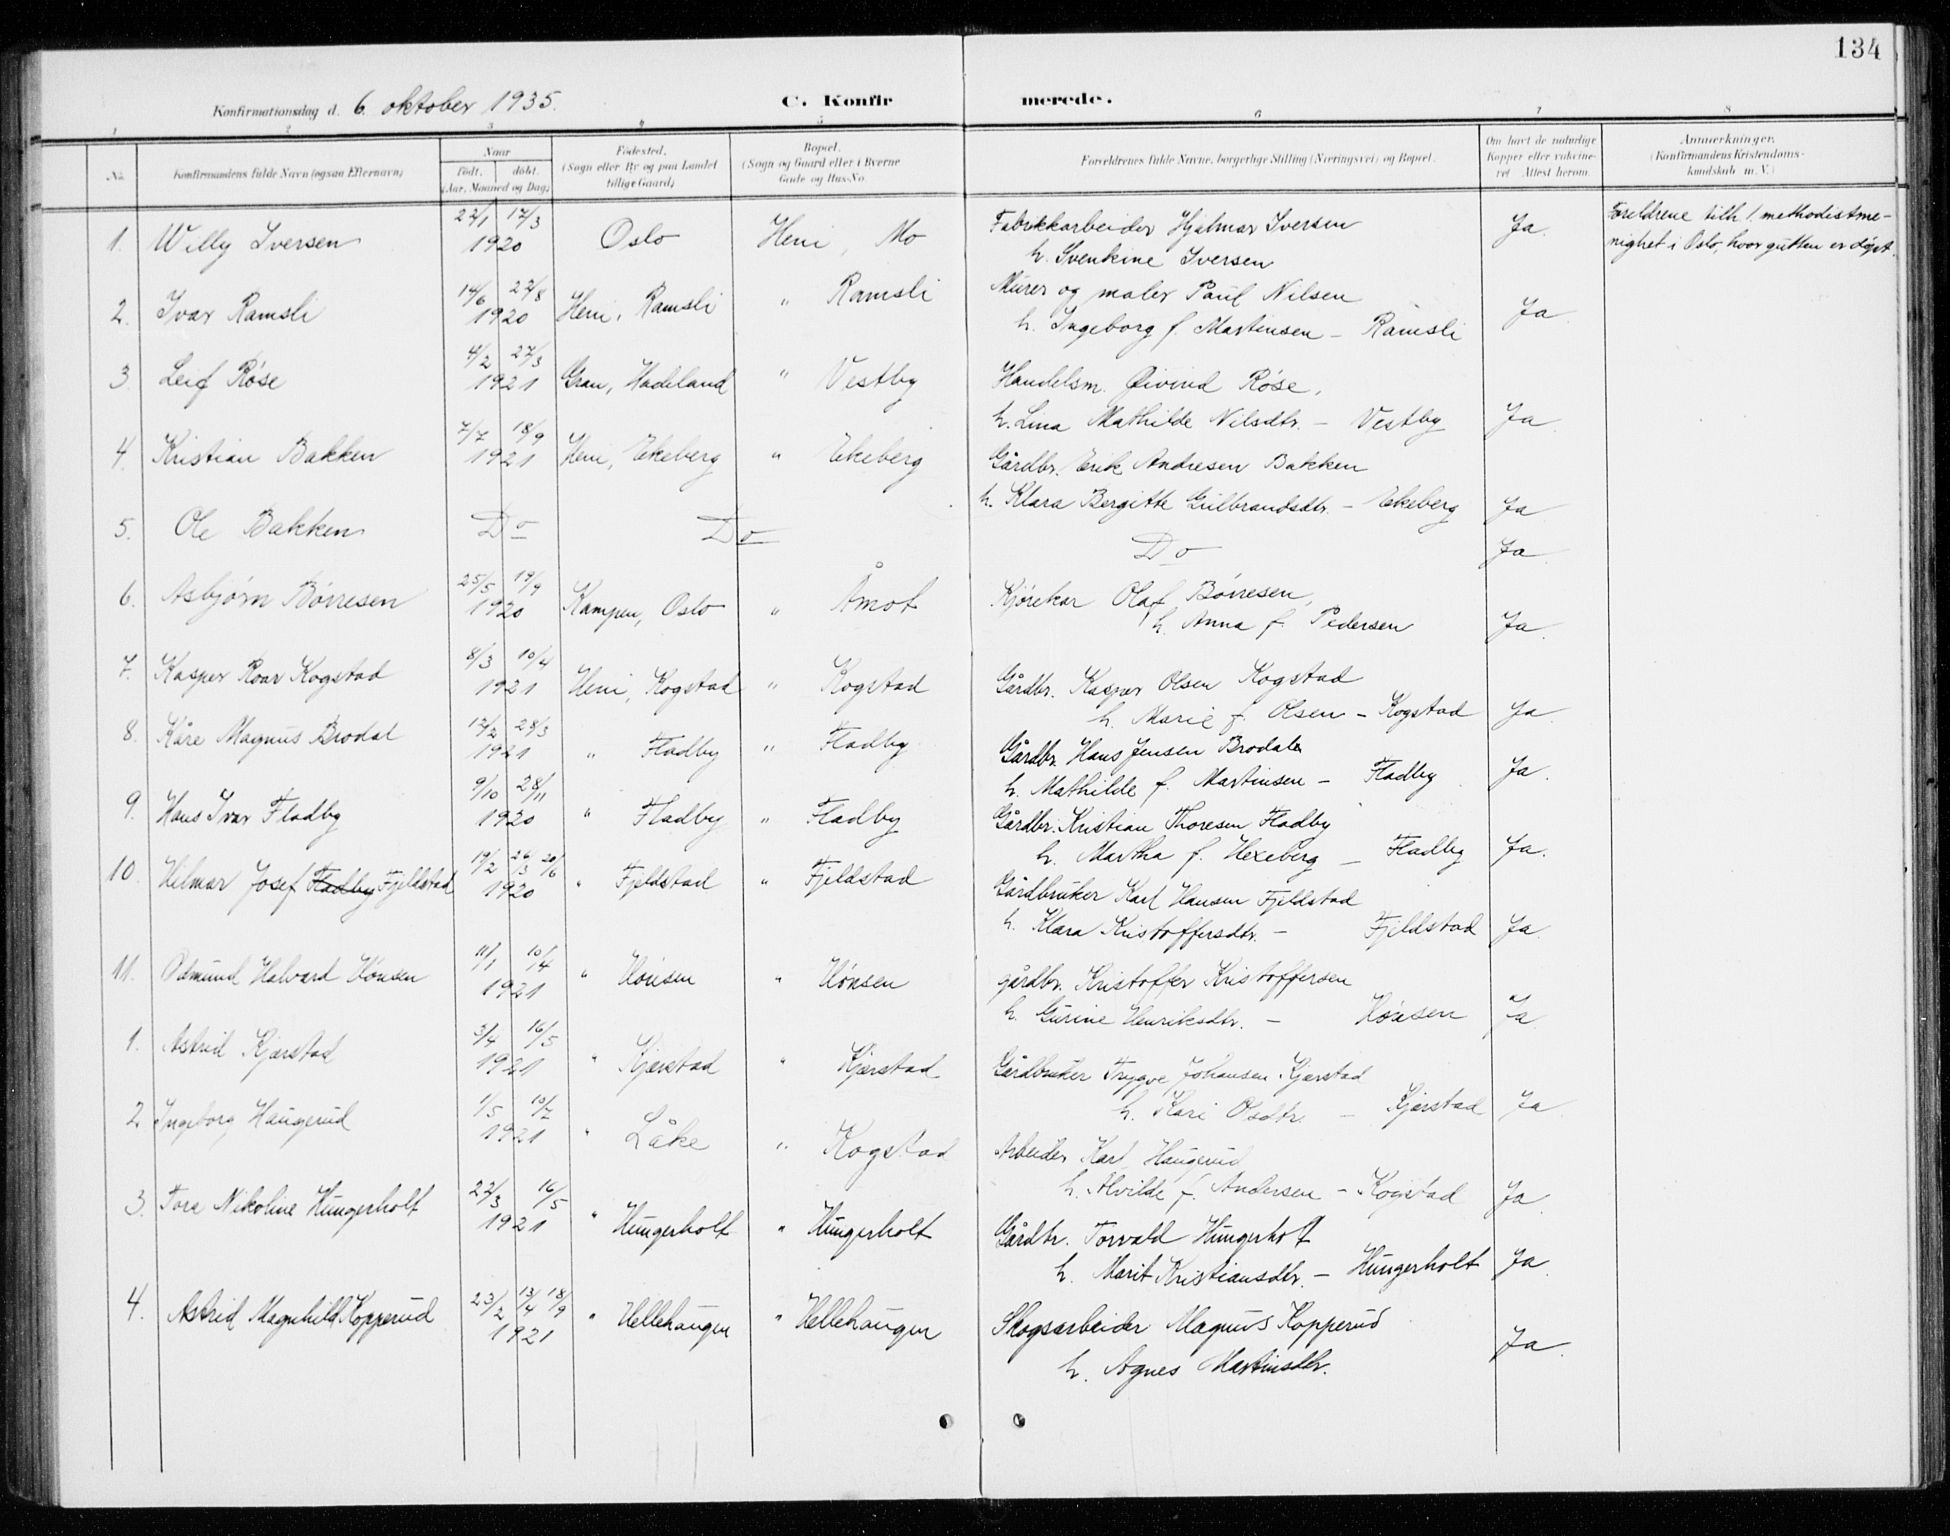 134
Konfirmationsdag d. 6. oktober 1935.
C. Konfirmerede.
1 2 3 4 5 6 7 8
No.
Konfirmandens fulde Navn (ogsaa Efternavn)
Naar
Født. døbt.
(Aar, Maaned og Dag)
Fødested.
(Sogn eller By og paa Landet tillige Gaard)
Bopæl.
(Sogn og Gaard eller i Byerne Gade og Hus-No.
Forældrenes fulde Navne, borgerlige Stilling (Næringsvei) og Bopæl.
Om havt de naturlige Kopper eller vakcineret. Attest herom.
Anmærkninger.
(Konfirmandens Kristendomskundskab m. V.)
1. Willy Iversen 22/1 17/3 1920 Oslo Heni, Mo Fabrikkarbeider Hjalmar Iversen Ja. Foreldrene tilh. 1. methodistme-
h. Svenkine Iversen nighet i Oslo, hvor gutten er døpt.
2. Ivar Ramsli 14/6 22/8 1920 Heni, Ramsli " Ramsli Murer og maler Paul Nilsen
h. Ingeborg f. Martinsen - Ramsli Ja.
3. Leif Røse 4/2 27/3 1921 Gran, Hadeland " Vestby Handelsm. Øivind Røse,
h. Lina Mathilde Nilsdtr. - Vestby Ja.
4. Kristian Bakken 7/7 18/9 1921 Heni, Ekeberg " Ekeberg Gårdbr. Erik Andresen Bakken
h. Klara Bergitte Gulbrandsdtr. - Ekeberg Ja
5. Ole Bakken Do Do Do Ja.
6. Asbjørn Børresen 25/5 19/9 1920 Kampen, Oslo " Åmot Kjørekar Olaf Børresen,
h. Anna f. Pedersen Ja.
7. Kasper Roar Kogstad 8/3 10/4 1921 Heni, Kogstad " Kogstad Gårdbr. Kasper Olsen Kogstad
h. Marie f. Olsen - Kogstad Ja.
8. Kåre Magnus Brodal 12/2 28/3 1921 " Fladby " Fladby Gårdbr. Hans Jensen Brodal
h. Mathilde f. Martinsen - Fladby Ja.
9. Hans Ivar Fladby 9/10 28/11 1920 " Fladby " Fladby Gårdbr. Kristian Thoresen Fladby
h. Martha f. Hexeberg - Fladby Ja.
10. Hilmar Josef Fladby Fjeldstad 19/2 26/3 20/6 1920 " Fjeldstad " Fjeldstad Gårdbruker Karl Hansen Fjeldstad
h. Klara Kristoffersdtr. - Fjeldstad Ja.
11. Odmund Halvard Hønsen 11/1 10/4 1921 " Hønsen " Hønsen gårdbr. Kristoffer Kristoffersen
h. Gurine Henriksdtr. - Hønsen Ja.
1. Astrid Kjærstad 3/4 16/5 1921 " Kjærstad " Kjærstad Gårdbruker Trygve Johansen Kjærstad
h. Kari Olsdtr. - Kjærstad Ja
2. Ingeborg Haugerud 1/5 10/7 1921 " Låke " Kogstad Arbeider Karl Haugerud
h. Alvilde f. Andersen - Kogstad Ja.
3. Tora Nikoline Hungerholt 22/3 16/5 1921 " Hungerholt " Hungerholt Gårdbr. Torvald Hungerholt
h. Marit Kristiansdtr. - Hungerholt Ja.
4. Astrid Magnhild Kopperud 23/2 13/4 18/9 1921 " Hellehaugen " Hellehaugen Skogsarbeider Magnus Kopperud
h. Agnes Martinsdtr. Ja.